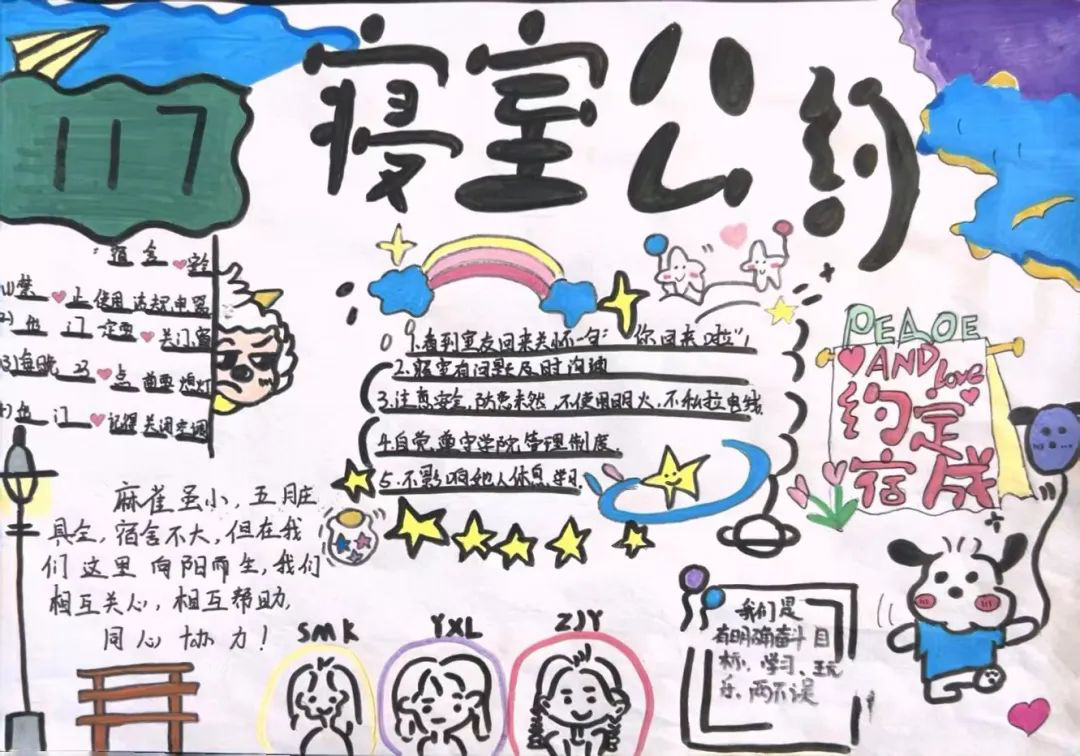 117
寝室公约
宿舍安全
(1)禁止使用违规电器
2)出门一定要关门窗
(3)每晚23点前要熄灯
4)出门记得关闭空调
1.看到室友回来关怀一句“你回来啦”!
2.寝室有问题及时沟通
3.注意安全,防患未然,不使用明火,不私拉电线
4.自觉遵守学院管理制度.
5.不影响她人休息学习
PEACE
AND
LOVE
约定
宿成
麻雀虽小,五脏
具全,宿舍不大,但在我
们这里向阳而生,我们
相互关心,相互帮助,
同心协力!
SMK
YXL
ZJY
我们是
有明确奋斗目
标、学习、玩
乐、两不误